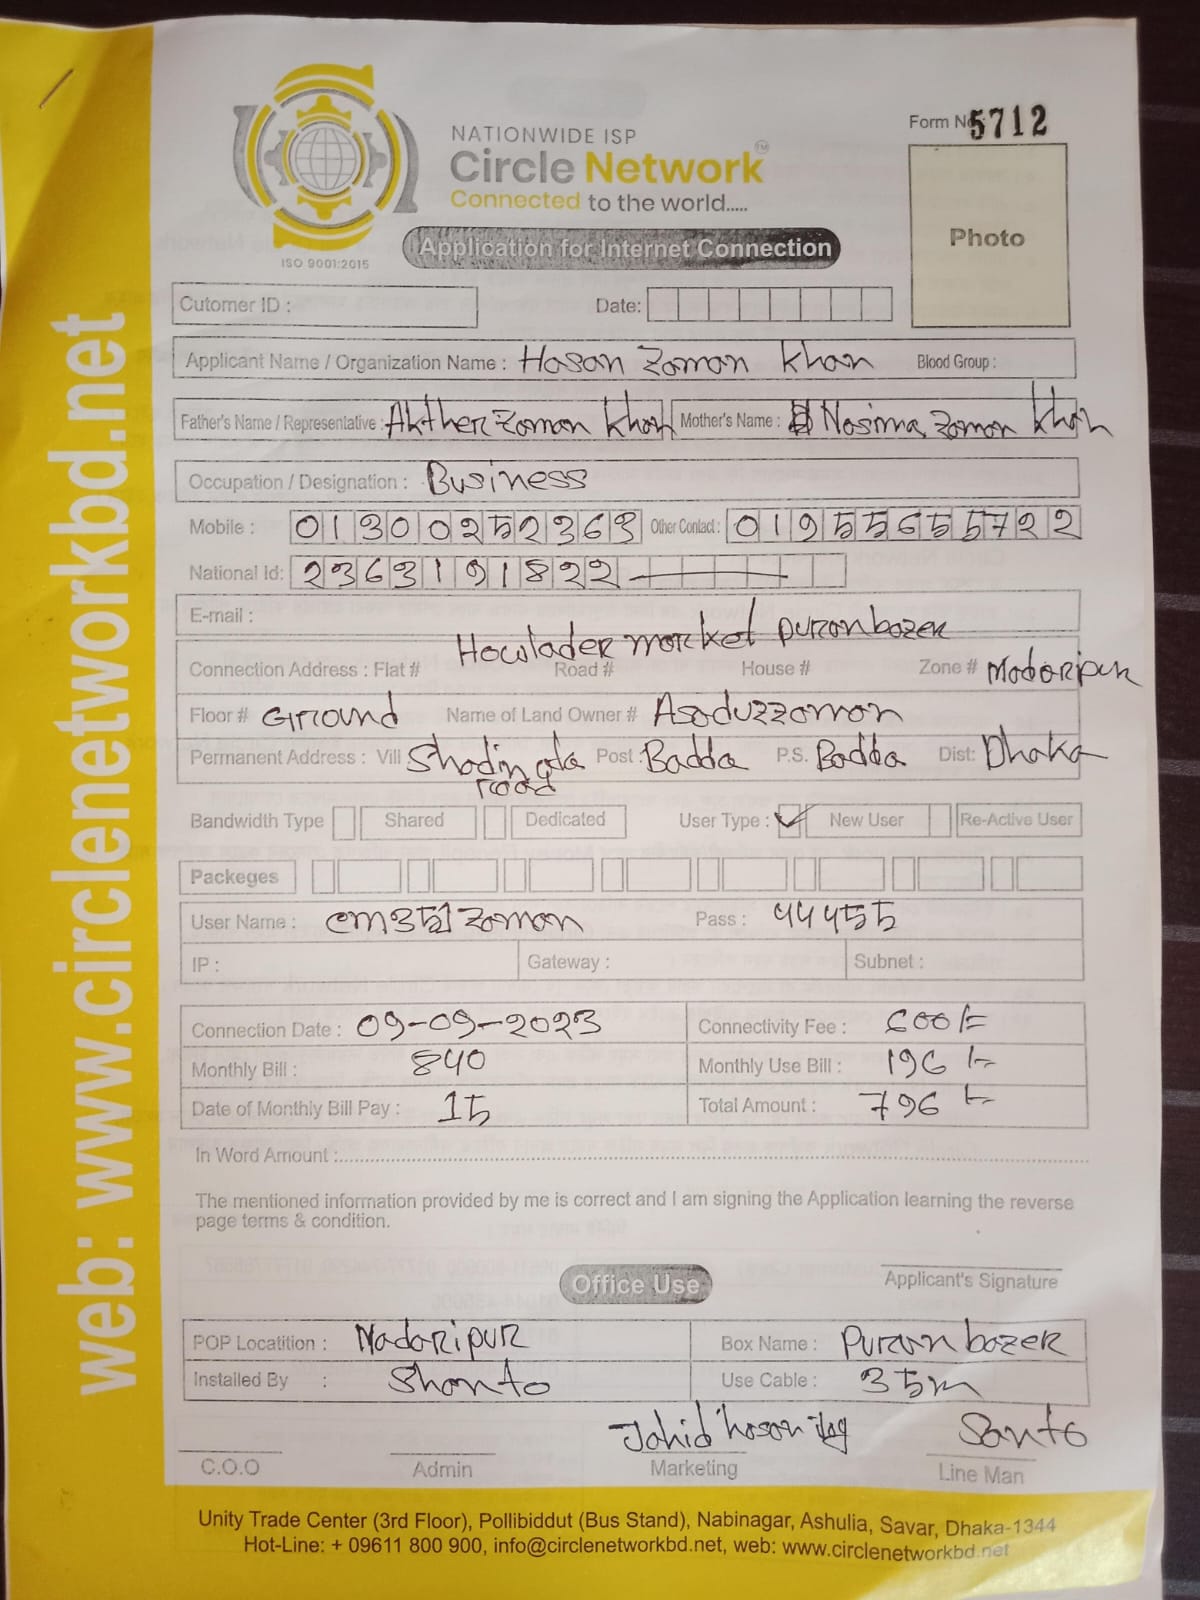 web: www.circlenetworkbd.net
NATIONWIDE ISP
Circle Network TM
Connected to the world.....
ISO 9001:2015
Form No 5712
Photo
Application for Internet Connection
Cutomer ID : Date:
Applicant Name / Organization Name : Hasan Zaman Khan Blood Group :
Father's Name / Representative : Akther Zaman Khan Mother's Name : Nasima Zaman Khan
Occupation / Designation : Business
Mobile : 01300252363 Other Contact : 01955655722
National Id: 2363191822
E-mail :
Howlader market puranbazer
Connection Address : Flat # Road # House # Zone # Madaripur
Floor # Ground Name of Land Owner # Asaduzzaman
Permanent Address : Vill Shadingta road Post : Badda P.S. Badda Dist: Dhaka
Bandwidth Type Shared Dedicated User Type : New User Re-Active User
Packeges
User Name : cm351zaman Pass : 44455
IP : Gateway : Subnet :
Connection Date : 09-09-2023 Connectivity Fee : 600/=
Monthly Bill : 840 Monthly Use Bill : 196/=
Date of Monthly Bill Pay : 15 Total Amount : 796/=
In Word Amount :
The mentioned information provided by me is correct and I am signing the Application learning the reverse
page terms & condition.
Applicant's Signature
Office Use
POP Locatition : Madaripur Box Name : Puran bazer
Installed By : Shanto Use Cable : 35m
Jahid hasan Santo
C.O.O Admin Marketing Line Man
Unity Trade Center (3rd Floor), Pollibiddut (Bus Stand), Nabinagar, Ashulia, Savar, Dhaka-1344
Hot-Line: + 09611 800 900, info@circlenetworkbd.net, web: www.circlenetworkbd.net